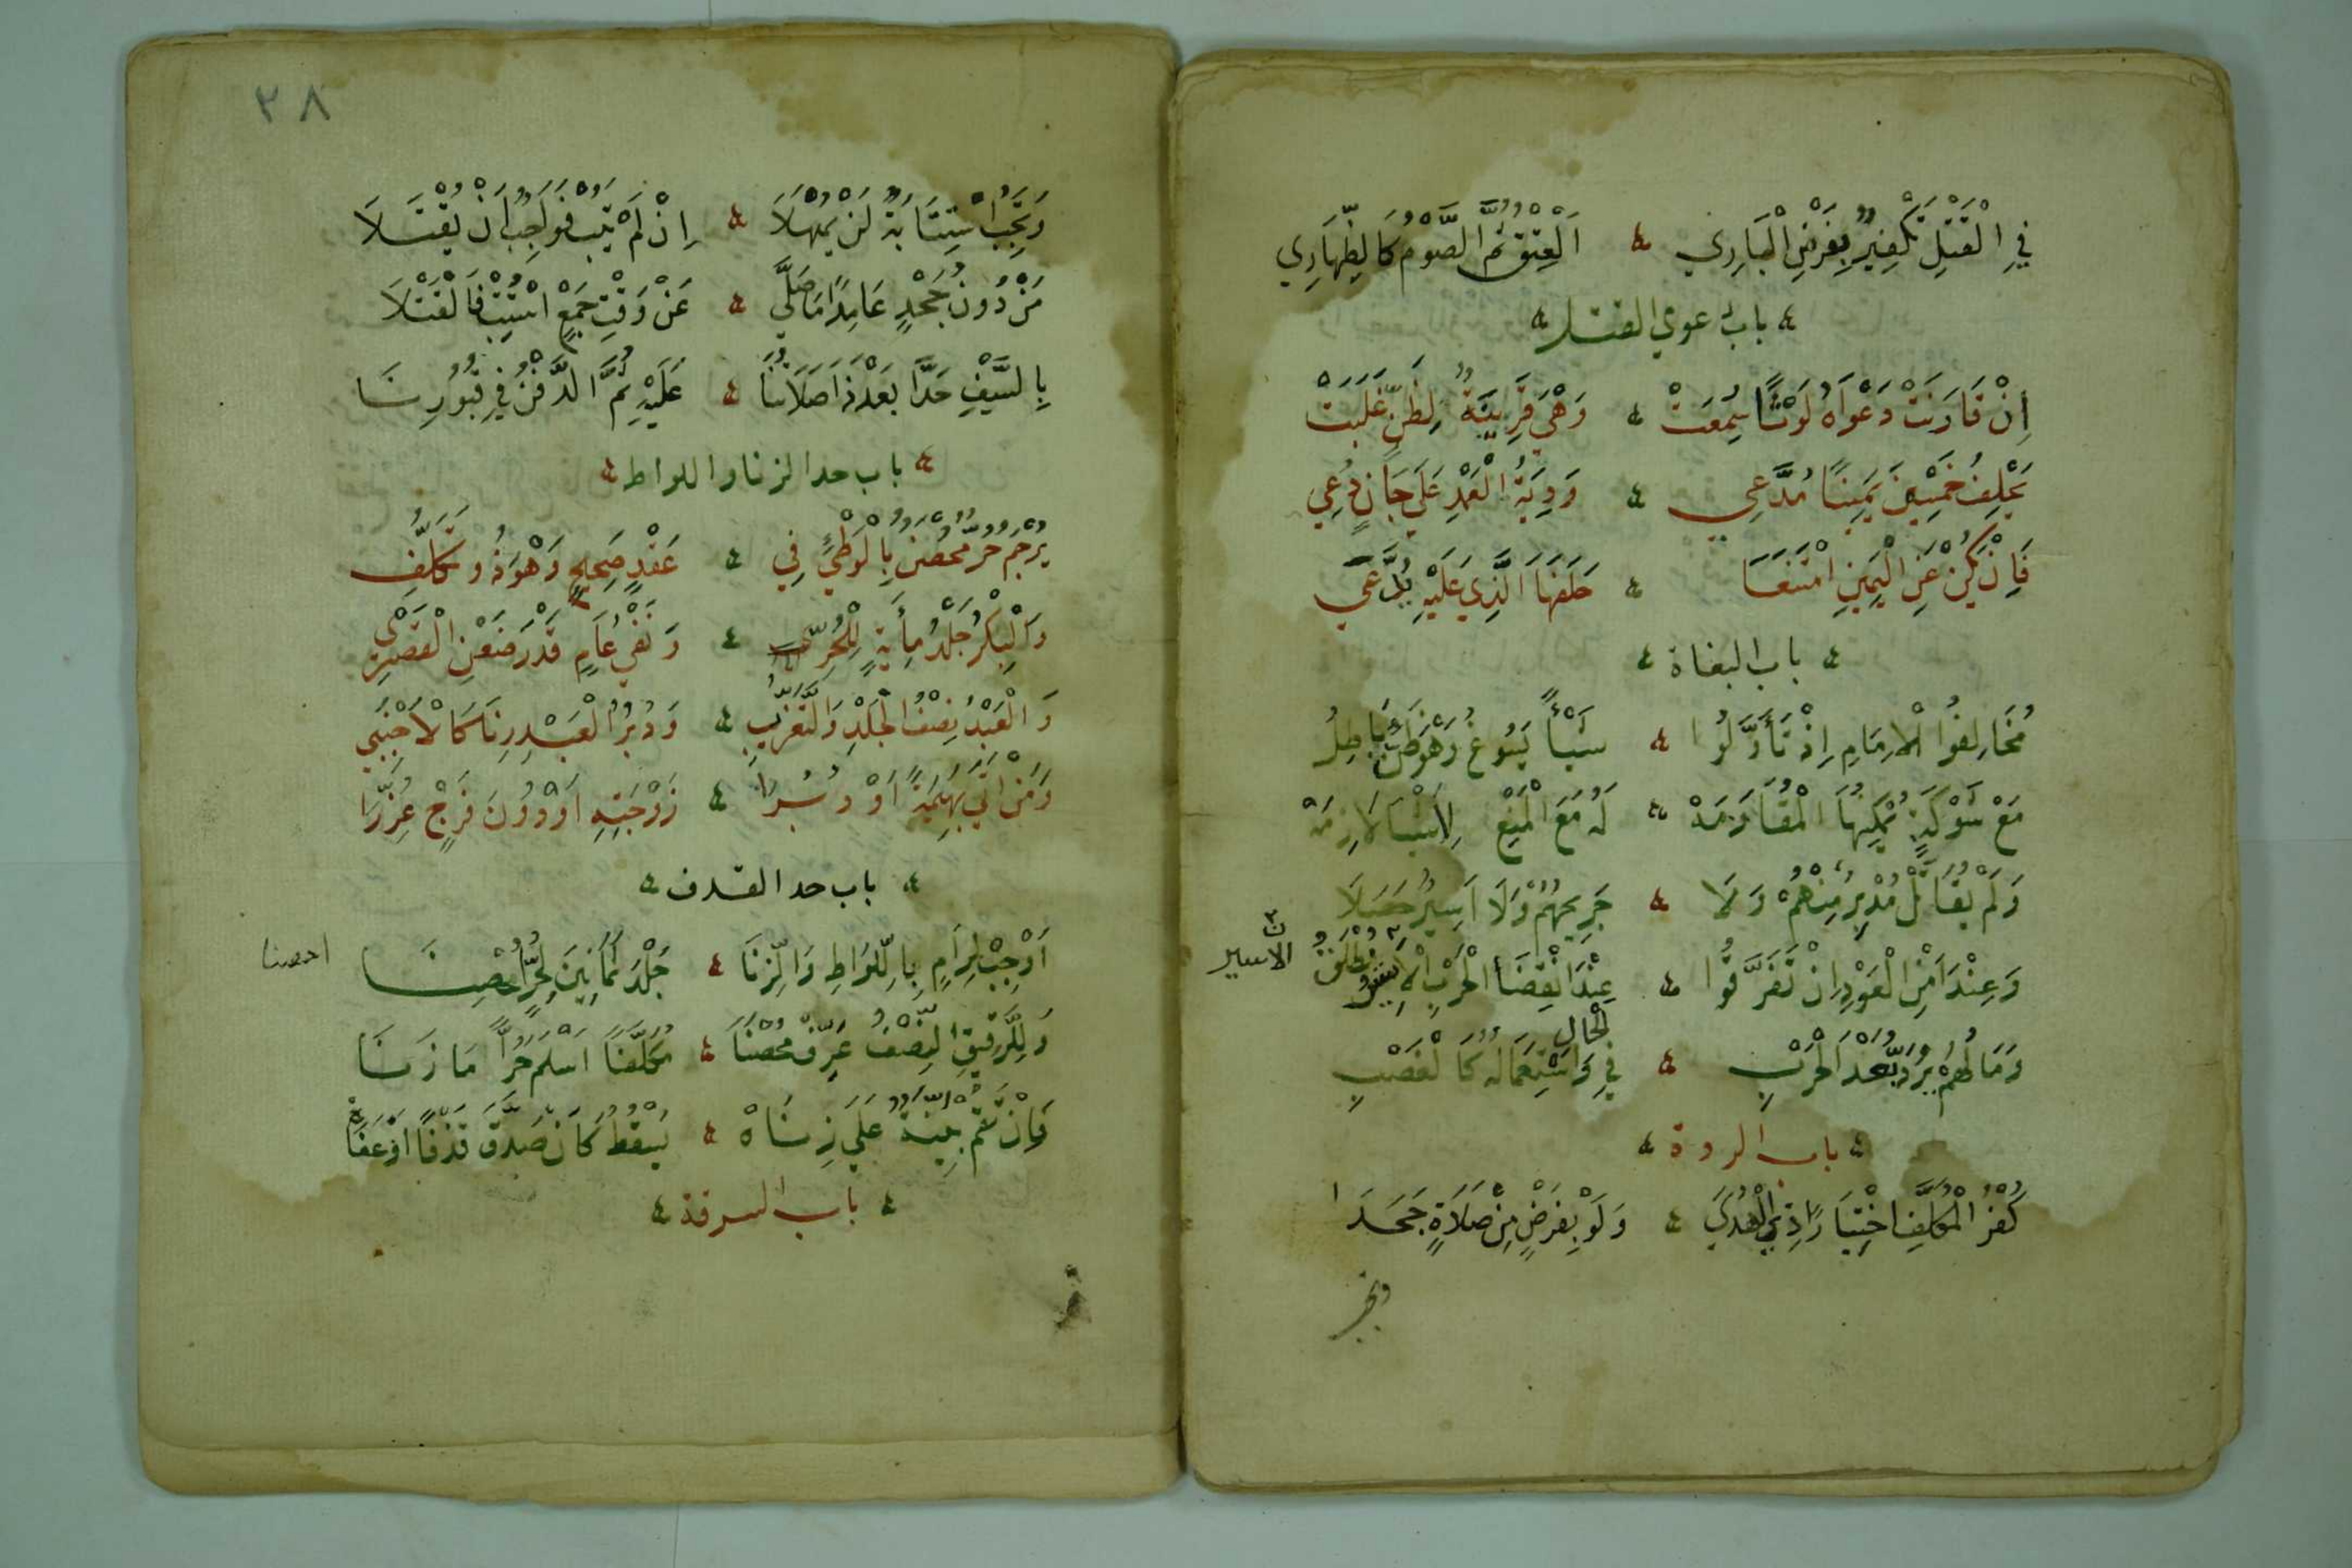 فِي الْقَتْلِ تَكْفِيرٌ بِفَرْضِ الْبَارِي ۞ اَلْعِتْقُ ثُمَّ الصَّوْمُ كَالظِّهَارِي
باب دعوي القتل
اِنْ قَارَنَتْ دَعْوَاهُ لَوْثًا سُمِعَتْ ۞ وَهْيَ قَرِينَةٌ لِظَنٍّ غَلَبَتْ
يَحْلِفُ خَمْسِينَ يَمِينًا مُدَّعِي ۞ وَدِيَةُ الْعَمْدِ عَلَي جَانٍ دُعِي
فَاِنْ يَكُنْ عَنِ الْيَمِينِ امْتَنَعَا ۞ حَلَفَهَا الَّذِي عَلَيْهِ يُدَّعَي
باب البغاة
مُخَالِفُوا الْاِمَامِ اِذْ تَأَوَّلُوا ۞ شَيْأً يَسُوغُ وَهْوَ ظَنٌّ بَاطِلُ
مَعْ شَوْكَةٍ يُمْكِنُهَا الْمُقَاوَمَهْ ۞ لَهُ مَعَ الْمَنْعِ لِاَشْيَا لَازِمَهْ
وَلَمْ يُقَاتَلْ مُدْبِرٌ مِنْهُمْ وَلَا ۞ جَرِيحُهُمْ وَلَا اَسِيرٌ حَصَلَا
وَعِنْدَ اَمْنِ الْعَوْدِ اِنْ تَفَرَّقُوا ۞ عِنْدَ انْقِضَا الْحَرْبِ الْاَسِيرُ يُطْلَقُ
الاسير
وَمَالُهُمْ يُرَدُّ بَعْدَ الْحَرْبِ ۞ فِي الْحَالِ وَاسْتِعْمَالُهُ كَالْغَصْبِ
باب الردة
كُفْرُ الْمُكَلَّفِ اخْتِيَارًا ذِي الْهُدَي ۞ وَلَوْ بِفَرْضٍ مِنْ صَلَاةٍ جَحَدَا
وتجب
٢٨
وَتَجِبُ اسْتِتَابَةٌ لَنْ يُمْهَلَا ۞ اِنْ لَمْ يَتُبْ فَوَاجِبٌ اَنْ يُقْتَلَا
مَنْ دُونَ جَحْدٍ عَامِدًا مَا صَلَّي ۞ عَنْ وَقْتِ جَمْعٍ اسْتُتِيبَ فَالْقَتْلَا
بِالسَّيْفِ حَدًّا بَعْدَ ذَا صَلَاتُنَا ۞ عَلَيْهِ ثُمَّ الدَّفْنُ فِي قُبُورِنَا
باب حد الزنا واللواط
يُرْجَمُ حُرٌّ مُحْصَنٌ بِالْوَطْيءِ فِي ۞ عَقْدٍ صَحِيحٍ وَهْوَ ذُو تَكَلُّفِ
وَالْبِكْرُ جَلْدُ مِأَيَةٍ لِلْحُرِّ ۞ وَنَفْيُ عَامٍ قَدْرَ ضَعْنِ الْقَصْرِ
وَالْعَبْدُ نِصْفُ الْجَلْدِ وَالتَّغْرِيبِ ۞ وَدُبْرُ الْعَبْدِ زِنًا كَالْاَجْنَبِي
وَمَنْ اَتَي بَهِيمَةً اَوْ دُبُرَا ۞ زَوْجَتِهِ اَوْ دُونَ فَرْجٍ عُزِّرَا
باب حد القذف
اَوْجِبْ لِرَامٍ بِاللِّوَاطِ وَالزِّنَا ۞ جَلْدَ ثَمَانِينَ لِحُرٍّ مُحْصِنَا
احصنا
وَلِلرَّقِيقِ النِّصْفُ عَرِّفْ مُحْصَنَا ۞ مُكَلَّفًا اَسْلَمَ حُرًّا مَا زَنَا
فَاِنْ تَقُمْ بَيِّنَةٌ عَلَي زِنَاهْ ۞ يَسْقُطْ كَاَنْ صَدَّقَ قَذْفًا اَوْ عَفَاهْ
باب السرقة